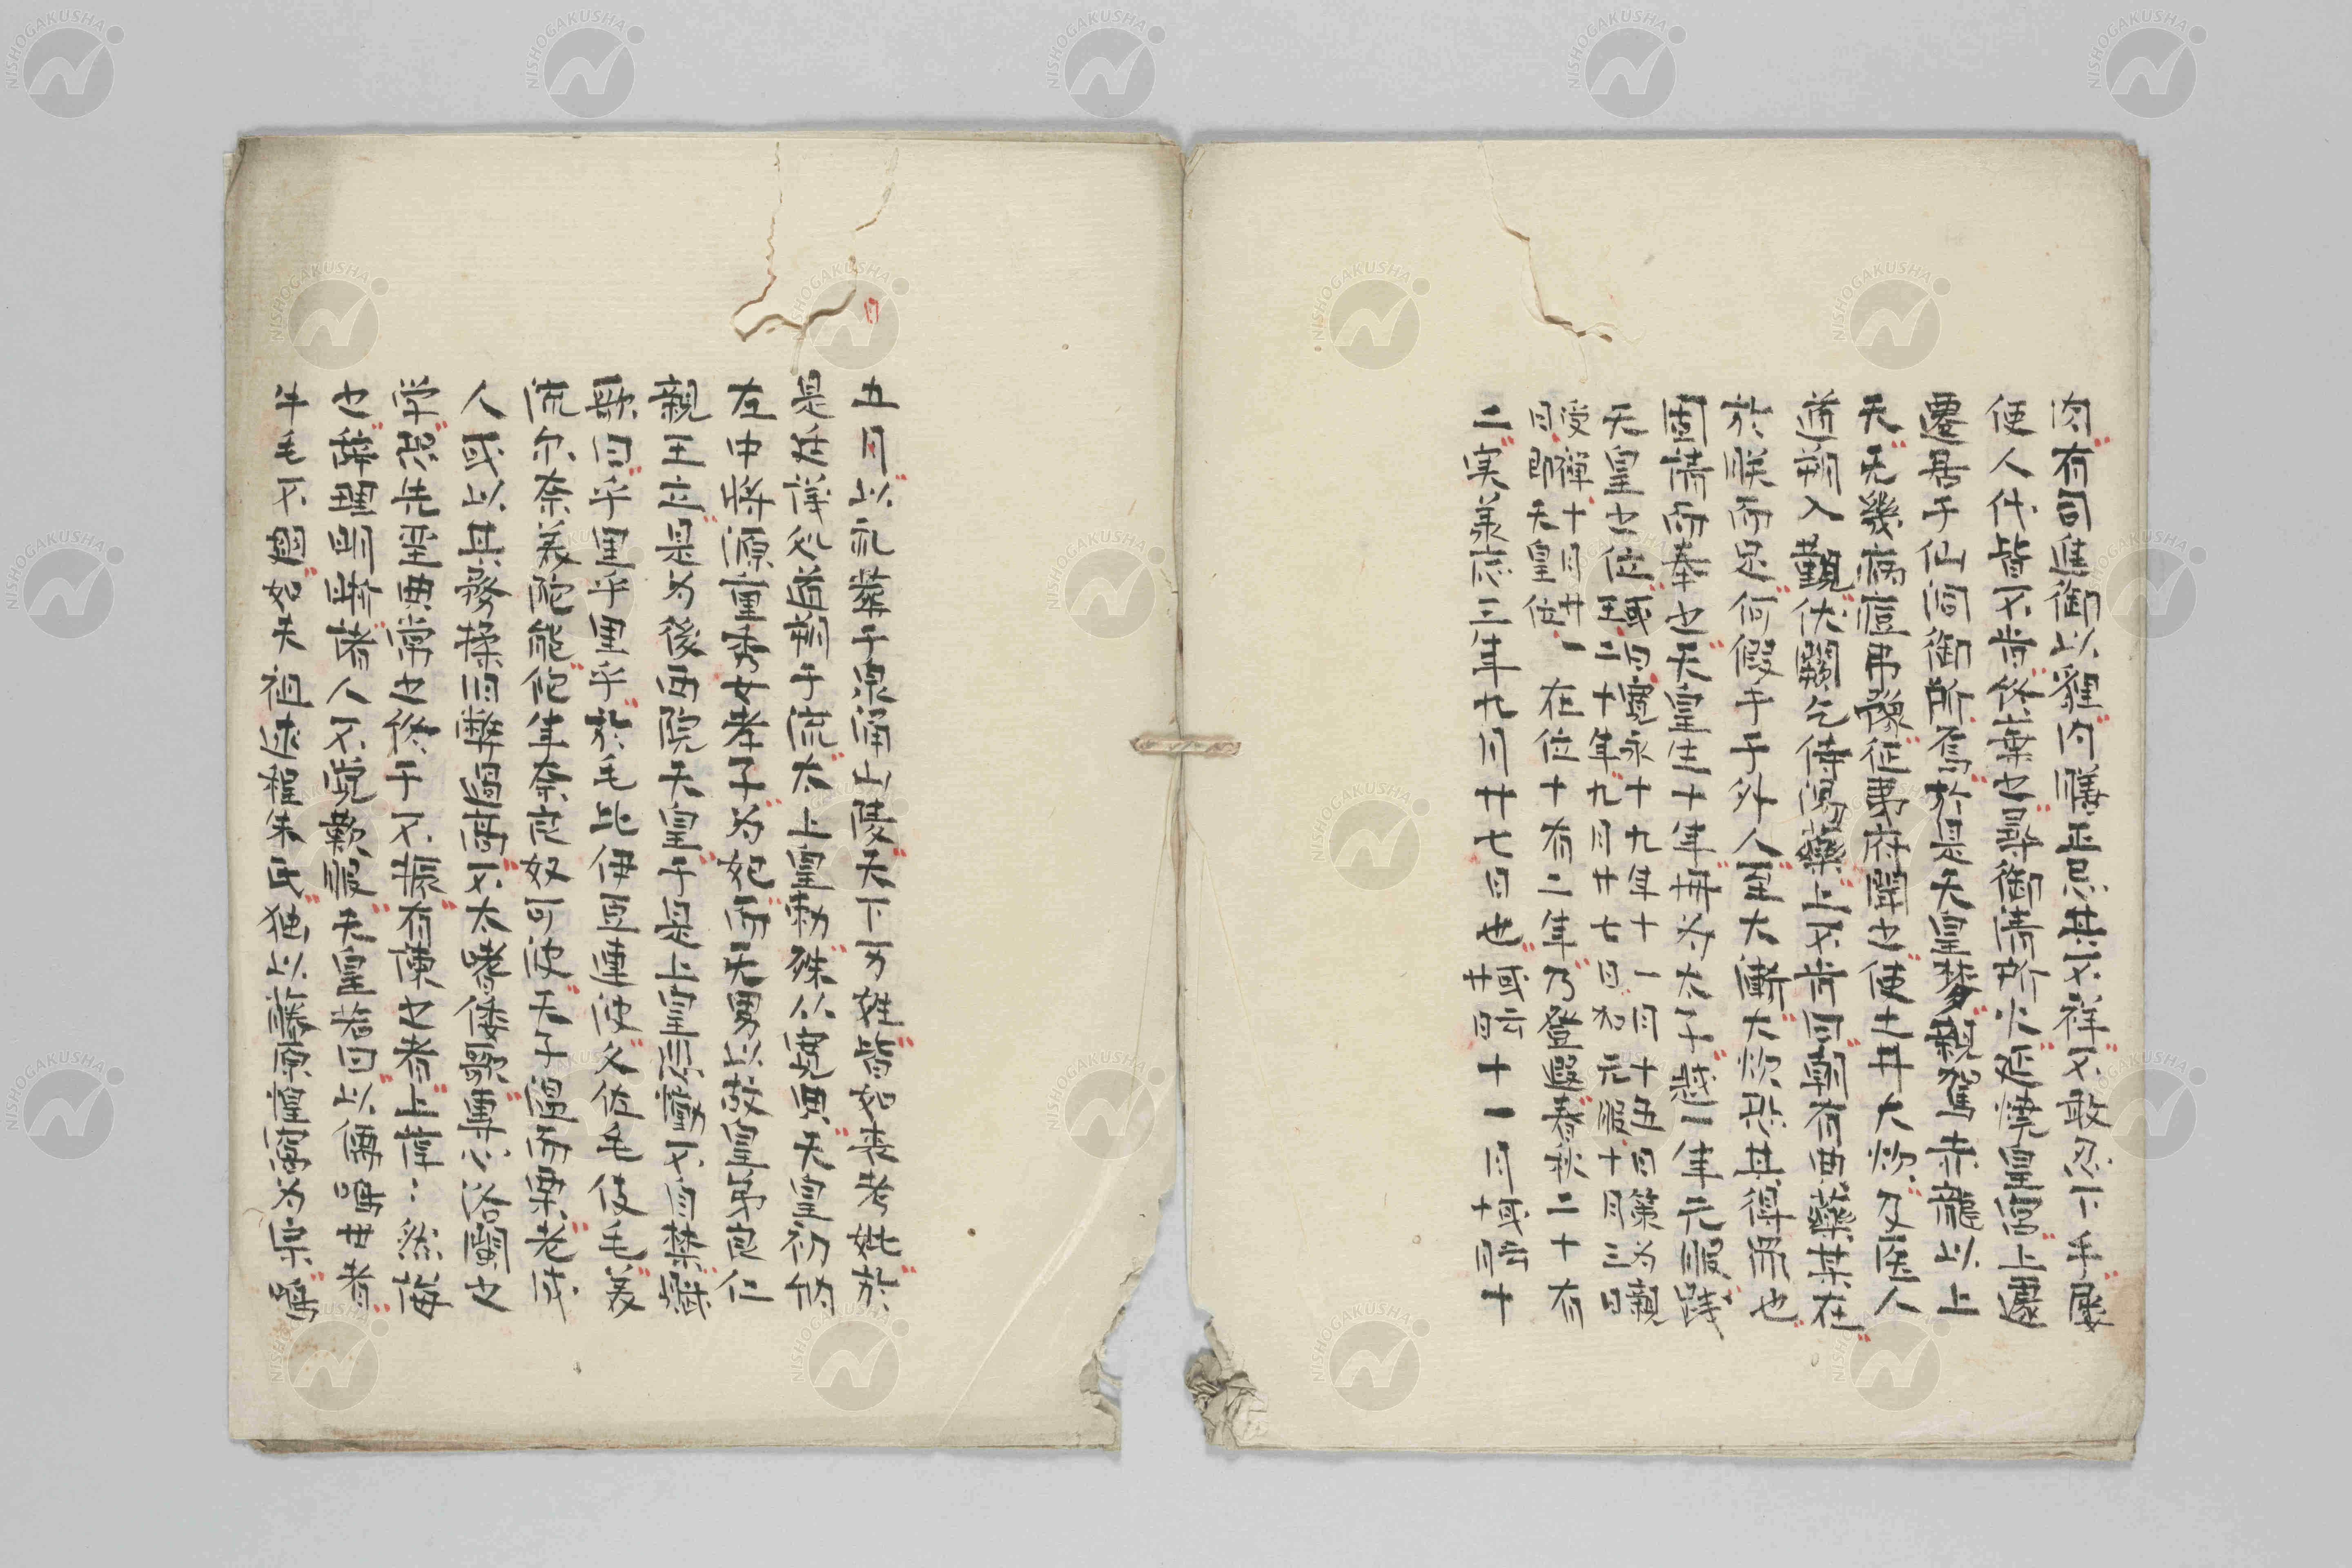 肉有司進御以貍肉膳正忌其不祥不敢忍下手屡
使人代皆不肯終棄也尋御清所火延燒皇宮上遷
遷居于仙洞御所焉於是天皇夢親駕赤龍以上
天无幾病痘弗豫征夷府聞也使土井大炊及医人
道朔入觀伏闕乞侍湯藥上不肯曰朝有典藥某在
於朕而足何假手于外人里大漸大炊形其得帰也
固請而奉也天皇生十年冊為太子越一年元服践
天皇也位或曰寛永十九年十一月十五日策為親
王二十年九月廿七日加元服十月三日
受禪十月廿一
日即天皇位 在位十有二年乃登遐春秋二十有
二実義応三年九月廿七日也或云十一月或云十
五月以礼葬于泉涌山陵天下万姓皆如喪考妣於
是廷議処道朔于流太上皇勅殊从寛典天皇初納
左中將源重秀女孝子為妃而无男以故皇弟良仁
親王立是为後西院天皇于是上皇忿懣不自禁賦
歌曰乎里乎里乎於毛比伊豆連波久佐毛伎毛美
流尓奈美陀能他年奈良奴可波天子温而栗老成
人或以其務揉旧弊過高不太嗜倭歌専心洛閩也
学思先聖典常也終于不振有陳也者上惇〻然悔
也辞理明晰諸人不覚歎服天皇嘗曰以儒鳴世者
牛毛不翅如夫祖述程朱氏独以藤原惺窩为宗鳴